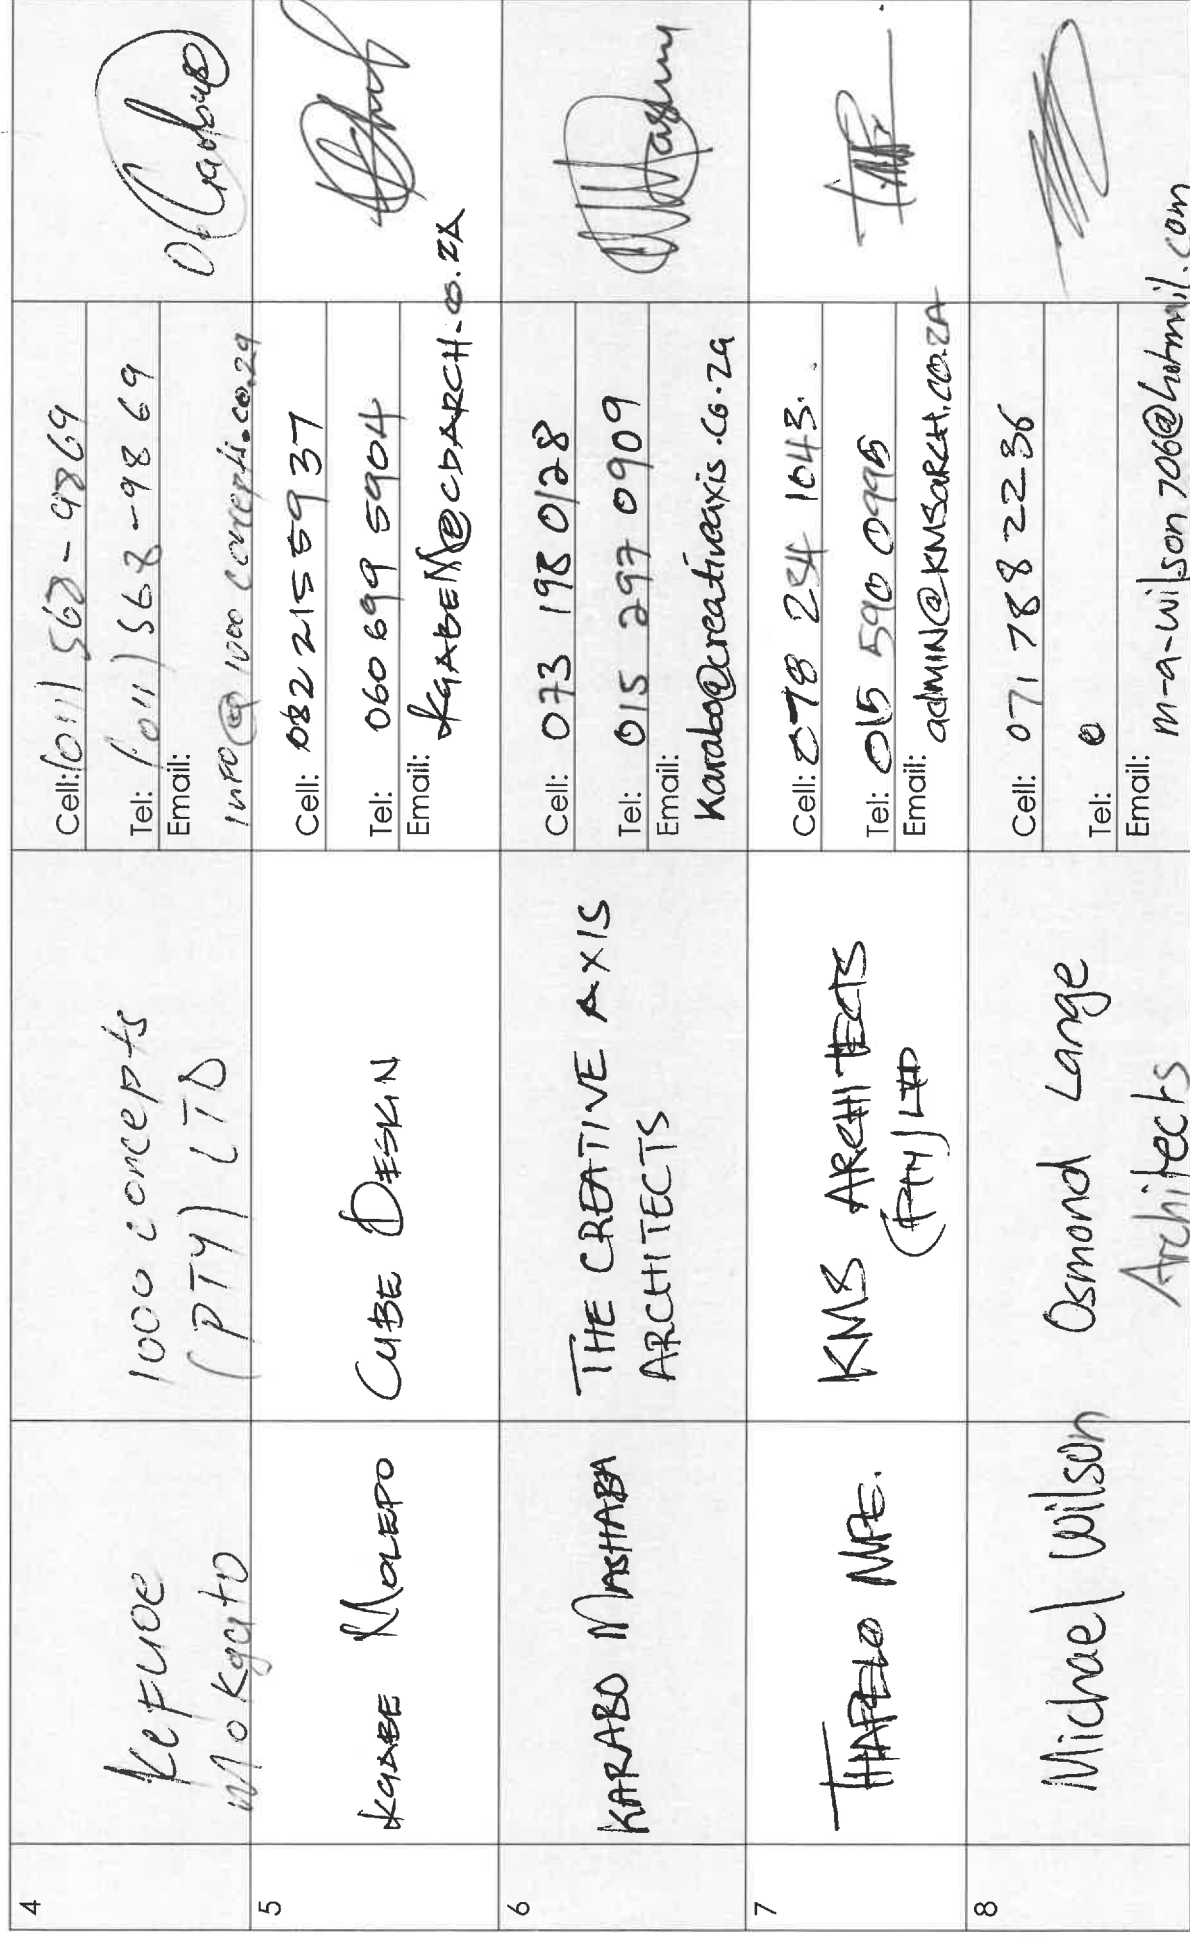 4
Kefuoe
Mokgato
1000 concepts
(PTY) LTD
Cell: (011) 568-9869
Tel: (011) 568-9869
Email:
info@1000concepts.co.za
5
KGABE MOLEPO
CUBE DESIGN
Cell: 082 215 5937
Tel: 060 699 5904
Email:
KGABEM@CDARCH.CO.ZA
6
KARABO MASHABA
THE CREATIVE AXIS
ARCHITECTS
Cell: 073 198 0128
Tel: 015 297 0909
Email:
Karabo@creativeaxis.co.za
7
THAPELO MPE.
KMS ARCHITECTS
(PTY) LTD
Cell: 078 254 1043.
Tel: 015 590 0995
Email:
admin@KMSARCH.CO.ZA
8
Michael Wilson
Osmond Lange
Architects
Cell: 071 788 2236
Tel:
Email:
m-a-wilson706@hotmail.com